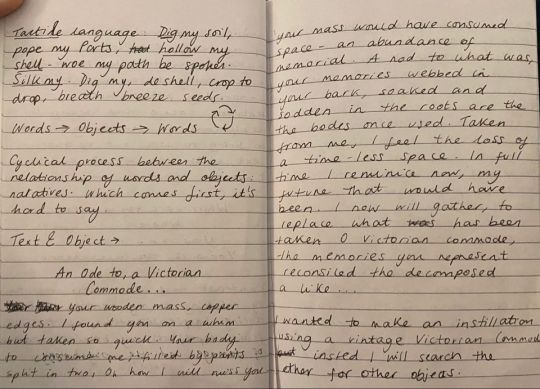 Tactile language: Dig my soil,
pope my Ports, hollow my
shell - woe my path be spoken.
Silk my. Dig my, deshell, crop to
drop, breath breeze seeds.
Words → Objects → Words
Cyclical process between the
relationship of words and objects:
nalatives. Which comes first, it's
hard to say.
Text & Object →
An Ode to, a Victorian
Commode...
your wooden mass, copper
edges. I found you on a whim
but taken so quick. Your body
to me filled by
split in two, Oh how I will miss you
your mass would have consumed
space - an abundance of
memorial. A nod to what was,
your memories webbed in
your bark, soaked and
sodden in the roots are the
the bodes once used. Taken
from me, I feel the loss of
a time-less space. In full
time I reminice now, my
future that would have
been. I now will gather, to
replace what was has been
taken O Victorian commode,
the memories you represent
reconsiled the decomposed
a like...
I wanted to make an instillation
using a vintage Victorian Commode
insted I will search the
ether for other objeas.